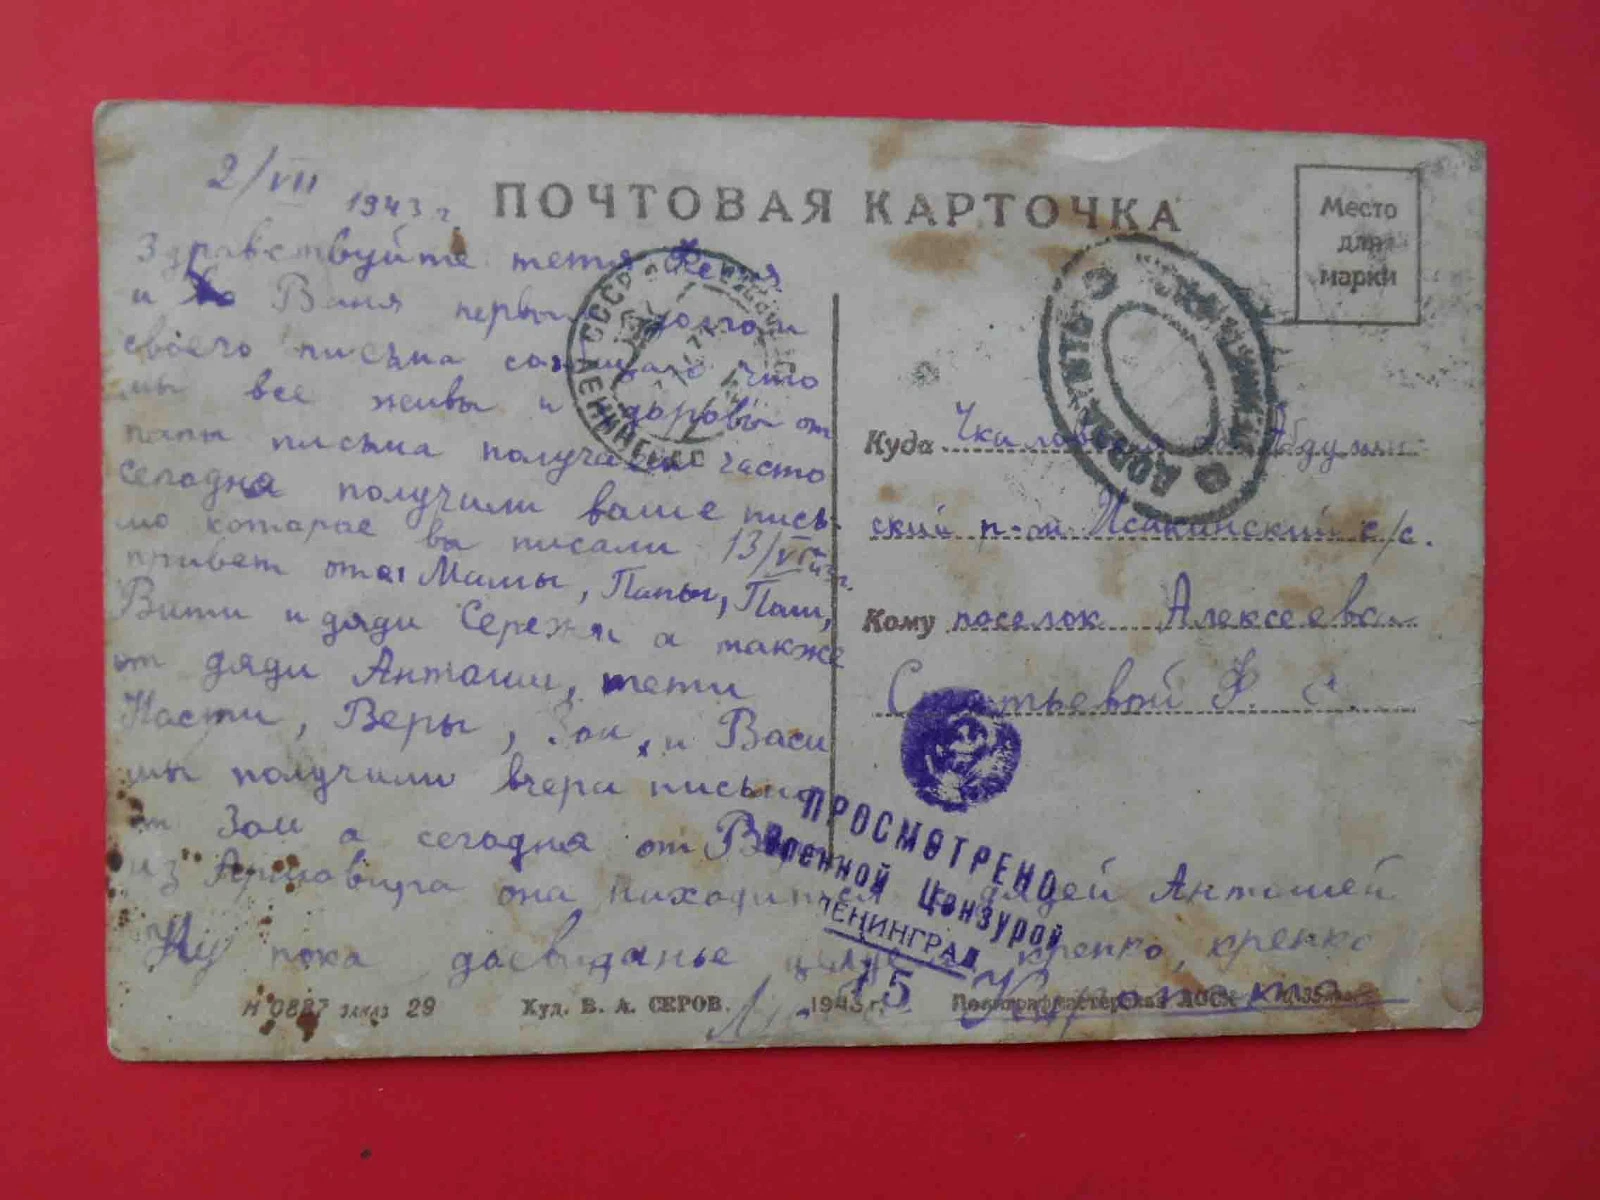 2/VII 1943 г
ПОЧТОВАЯ КАРТОЧКА
Место
для
марки
Здравствуйте тетя Феня
и Ваня первым долгом
своего письма сообщаю что
мы все живы и здоровы от
папы письма получаем часто
сегодня получили ваше пись-
мо которае вы писали 13/VI 43 г.
привет от Мамы, Папы,
Вити и дяди Сережи а также
от дяди Антоши, тети
Насти, Веры, Зои, и Васи
мы получили вчера письмо
от Зои а сегодня от Веры
из она находится дядей Антошей
Ну пока досвиданье целую крепко, крепко
СССР
ЛЕНИНГРАД
ДОПЛАТИТЬ
Куда Чкаловская об. Абдулин-
ский р-он Исакинский с/с.
Кому поселок Алексеевка
Ф. С.
ПРОСМОТРЕНО
Военной Цензурой
ЛЕНИНГРАД
15
Н 0887 заказ 29 Худ. В. А. СЕРОВ. 1943 г.